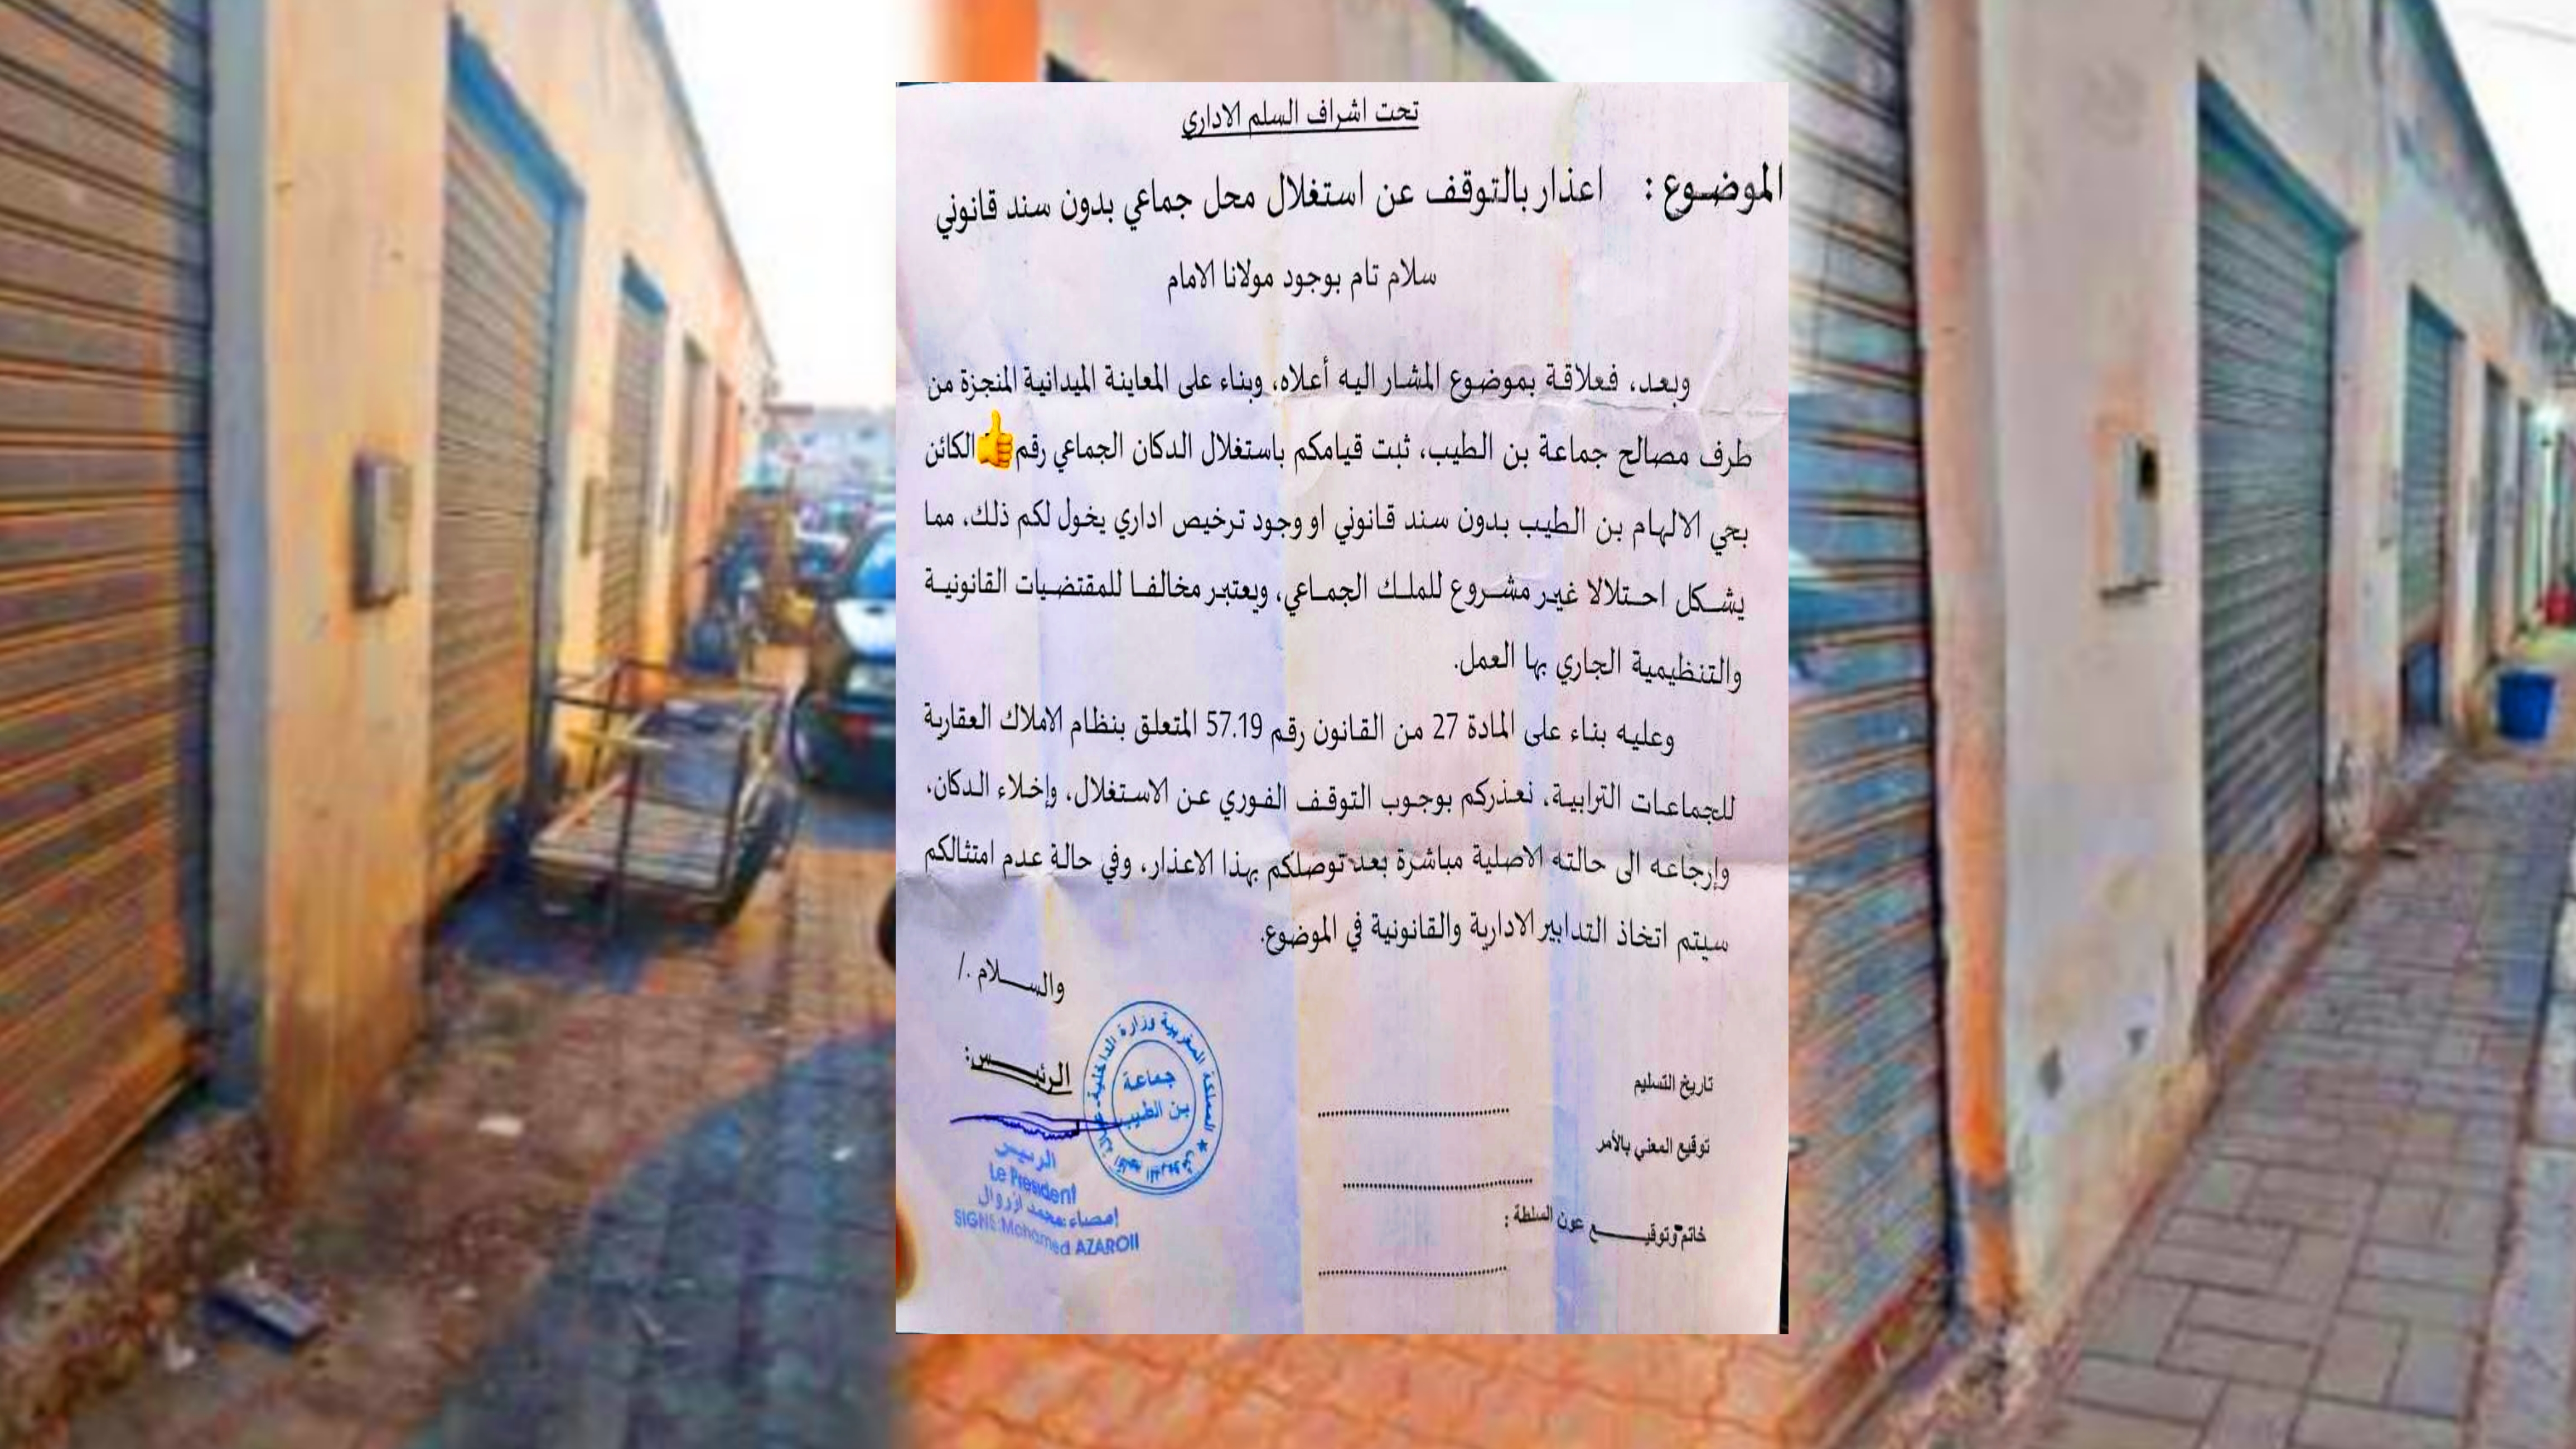 تحت اشراف السلم الاداري
الموضوع : اعذار بالتوقف عن استغلال محل جماعي بدون سند قانوني
سلام تام بوجود مولانا الامام
وبعد، فعلاقة بموضوع المشار اليه أعلاه، وبناء على المعاينة الميدانية المنجزة من
طرف مصالح جماعة بن الطيب، ثبت قيامكم باستغلال الدكان الجماعي رقم👍الكائن
بحي الالهام بن الطيب بدون سند قانوني او وجود ترخيص اداري يخول لكم ذلك، مما
يشكل احتلالا غير مشروع للملك الجماعي، ويعتبر مخالفا للمقتضيات القانونية
والتنظيمية الجاري بها العمل.
وعليه بناء على المادة 27 من القانون رقم 57.19 المتعلق بنظام الاملاك العقارية
للجماعات الترابية، نعذركم بوجوب التوقف الفوري عن الاستغلال، وإخلاء الدكان،
وإرجاعه الى حالته الاصلية مباشرة بعد توصلكم بهذا الاعذار، وفي حالة عدم امتثالكم
سيتم اتخاذ التدابير الادارية والقانونية في الموضوع.
والسلام ./
الرئيس:
المملكة المغربية وزارة الداخلية
جماعة
بن الطيب
الرئيس
Le President
إمضاء:محمد ازروال
SIGNE:Mohamed AZAROIL
تاريخ التسليم
توقيع المعني بالأمر
خاتم وتوقيع عون السلطة :